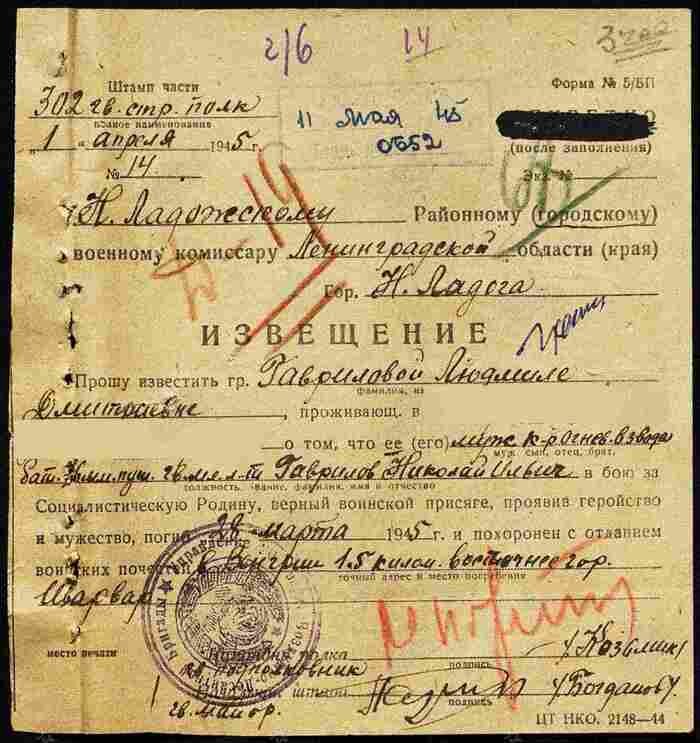 2/6 14
Штамп части
Форма № 5/БП
302 гв. стр. полк
полное наименование
11 мая 45
0652
„1“ апреля 1945 г.
(после заполнения)
№ 14
Экз. №
Н. Ладожскому Районному (городскому)
военному комиссару Ленинградской области (края)
Гор. Н. Ладога
ИЗВЕЩЕНИЕ
Прошу известить гр. Гавриловой Людмиле
фамилия, имя
Дмитриевне, проживающ. в
о том, что ее (его) муж к-р огнев. взвода
муж, сын, отец, брат,
бат. гв. мл. л-т Гаврилов Николай Ильич в бою за
должность, звание, фамилия, имя и отчество
Социалистическую Родину, верный воинской присяге, проявив геройство
и мужество, погиб 28 марта 1945 г. и похоронен с отданием
воинских почестей в Венгрии 1.5 килом. восточнее гор.
точный адрес и место погребения
Шарвар
место печати
полка
подпись
/Козьмин/
гв. подполковник
штаба
подпись
/Богданов/
гв. майор.
ЦТ НКО. 2148—44